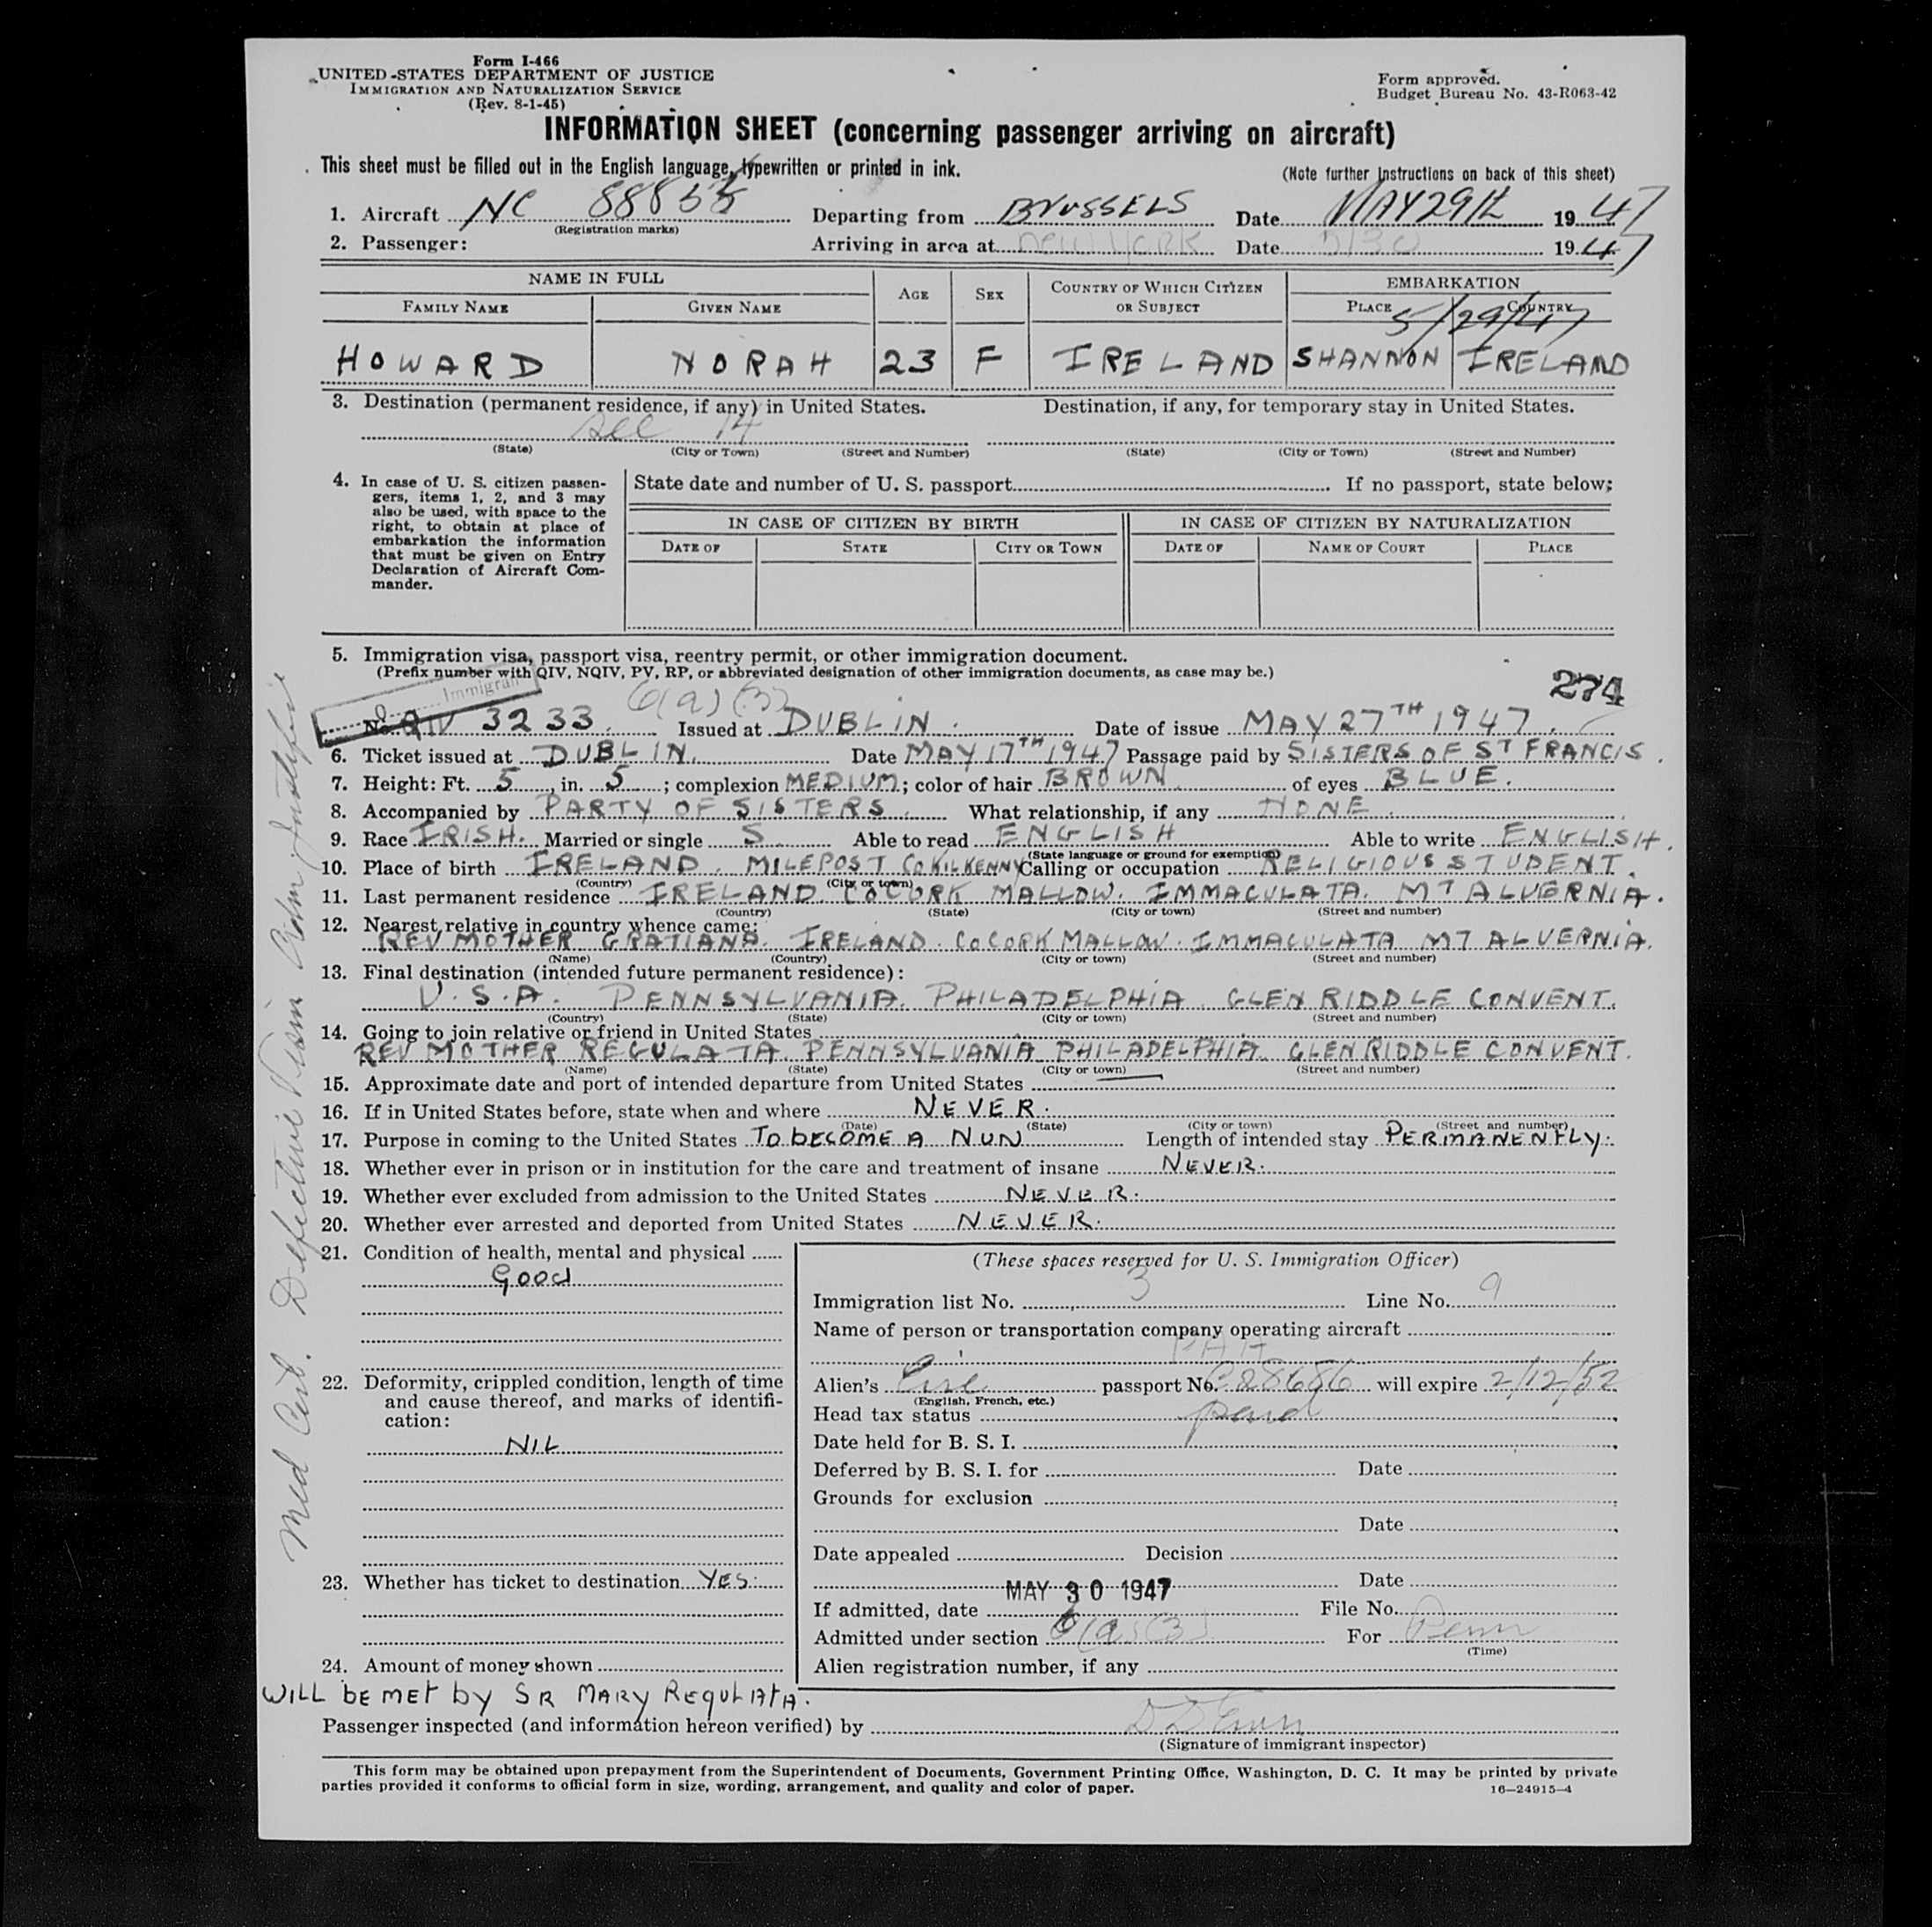 Form I-466
UNITED STATES DEPARTMENT OF JUSTICE
IMMIGRATION AND NATURALIZATION SERVICE
(Rev. 8-1-45)
Form approved.
Budget Bureau No. 43-R063-42
INFORMATION SHEET (concerning passenger arriving on aircraft)
This sheet must be filled out in the English language, typewritten or printed in ink.
(Note further Instructions on back of this sheet)
1. Aircraft NC Departing from BRUSSELS Date MAY 29th 1947
(Registration marks)
2. Passenger: Arriving in area at NEW YORK Date 5/30 1947
NAME IN FULL AGE SEX COUNTRY OF WHICH CITIZEN OR SUBJECT EMBARKATION
FAMILY NAME GIVEN NAME PLACE COUNTRY
5/29/47
HOWARD NORAH 23 F IRELAND SHANNON IRELAND
3. Destination (permanent residence, if any) in United States. Destination, if any, for temporary stay in United States.
See 14
(State) (City or Town) (Street and Number) (State) (City or Town) (Street and Number)
4. In case of U. S. citizen passen-
gers, items 1, 2, and 3 may
also be used, with space to the
right, to obtain at place of
embarkation the information
that must be given on Entry
Declaration of Aircraft Com-
mander.
State date and number of U. S. passport. If no passport, state below:
IN CASE OF CITIZEN BY BIRTH IN CASE OF CITIZEN BY NATURALIZATION
DATE OF STATE CITY OR TOWN DATE OF NAME OF COURT PLACE
5. Immigration visa, passport visa, reentry permit, or other immigration document.
(Prefix number with QIV, NQIV, PV, RP, or abbreviated designation of other immigration documents, as case may be.)
274
Immigrant
6(a)(3)
No. QIV 3233. Issued at DUBLIN. Date of issue MAY 27TH 1947.
6. Ticket issued at DUBLIN. Date MAY 17TH 1947 Passage paid by SISTERS OF ST FRANCIS.
7. Height: Ft. 5, in. 5; complexion MEDIUM; color of hair BROWN of eyes BLUE.
8. Accompanied by PARTY OF SISTERS. What relationship, if any NONE.
9. Race IRISH. Married or single S Able to read ENGLISH Able to write ENGLISH.
(State language or ground for exemption)
10. Place of birth IRELAND. MILEPOST CO KILKENNY Calling or occupation RELIGIOUS STUDENT.
(Country) (City or town)
11. Last permanent residence IRELAND. CO CORK MALLOW. IMMACULATA. MT ALVERNIA.
(Country) (State) (City or town) (Street and number)
12. Nearest relative in country whence came:
REV MOTHER GRATIANA. IRELAND. CO CORK MALLOW. IMMACULATA MT ALVERNIA.
(Name) (Country) (City or town) (Street and number)
13. Final destination (intended future permanent residence):
U.S.A. PENNSYLVANIA. PHILADELPHIA. GLEN RIDDLE CONVENT.
(Country) (State) (City or town) (Street and number)
14. Going to join relative or friend in United States
REV MOTHER REGULATA. PENNSYLVANIA PHILADELPHIA. GLEN RIDDLE CONVENT.
(Name) (State) (City or town) (Street and number)
15. Approximate date and port of intended departure from United States
16. If in United States before, state when and where NEVER.
(Date) (State) (City or town) (Street and number)
17. Purpose in coming to the United States TO bECOME A NUN Length of intended stay PERMANENTLY.
18. Whether ever in prison or in institution for the care and treatment of insane NEVER.
19. Whether ever excluded from admission to the United States NEVER.
20. Whether ever arrested and deported from United States NEVER.
21. Condition of health, mental and physical
Good
22. Deformity, crippled condition, length of time
and cause thereof, and marks of identifi-
cation:
NIL
23. Whether has ticket to destination YES.
24. Amount of money shown
(These spaces reserved for U. S. Immigration Officer)
Immigration list No. 3 Line No. 9
Name of person or transportation company operating aircraft
PAA
Alien's Eire passport No. C28686 will expire 2/12/52
(English, French, etc.)
Head tax status paid
Date held for B. S. I.
Deferred by B. S. I. for Date
Grounds for exclusion
Date
Date appealed Decision
Date
MAY 30 1947
If admitted, date File No.
Admitted under section 6(a)(3) For Perm
(Time)
Alien registration number, if any
WILL bE MEt by SR MARY REGULATA.
Passenger inspected (and information hereon verified) by
(Signature of immigrant inspector)
This form may be obtained upon prepayment from the Superintendent of Documents, Government Printing Office, Washington, D. C. It may be printed by private
parties provided it conforms to official form in size, wording, arrangement, and quality and color of paper.
16—24915-4
Med Cert. Defective Vision Adm